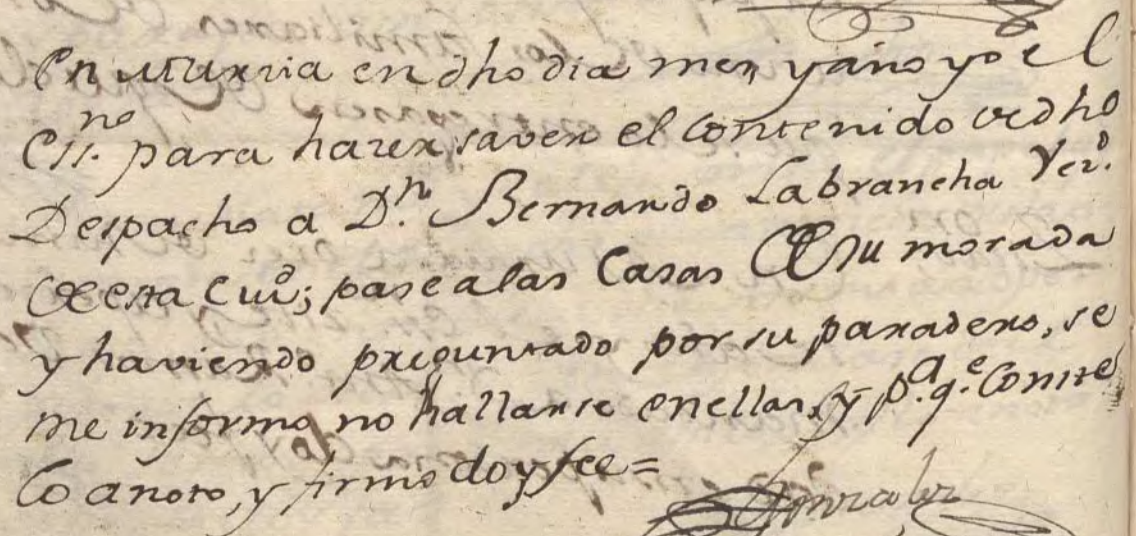 En Murcia en dho dia mes, y año yo el
Essno. para hazer saver el contenido de dho
Despacho a Dn. Bernardo Labrancha Vezo.
de esta Ciud; pase a las Casas de su morada
y haviendo preguntado por su paradero, se
me informo no hallarse en ellas, y pa. qe. Conste
lo anoto, y firmo doy fee=
Gonzalez